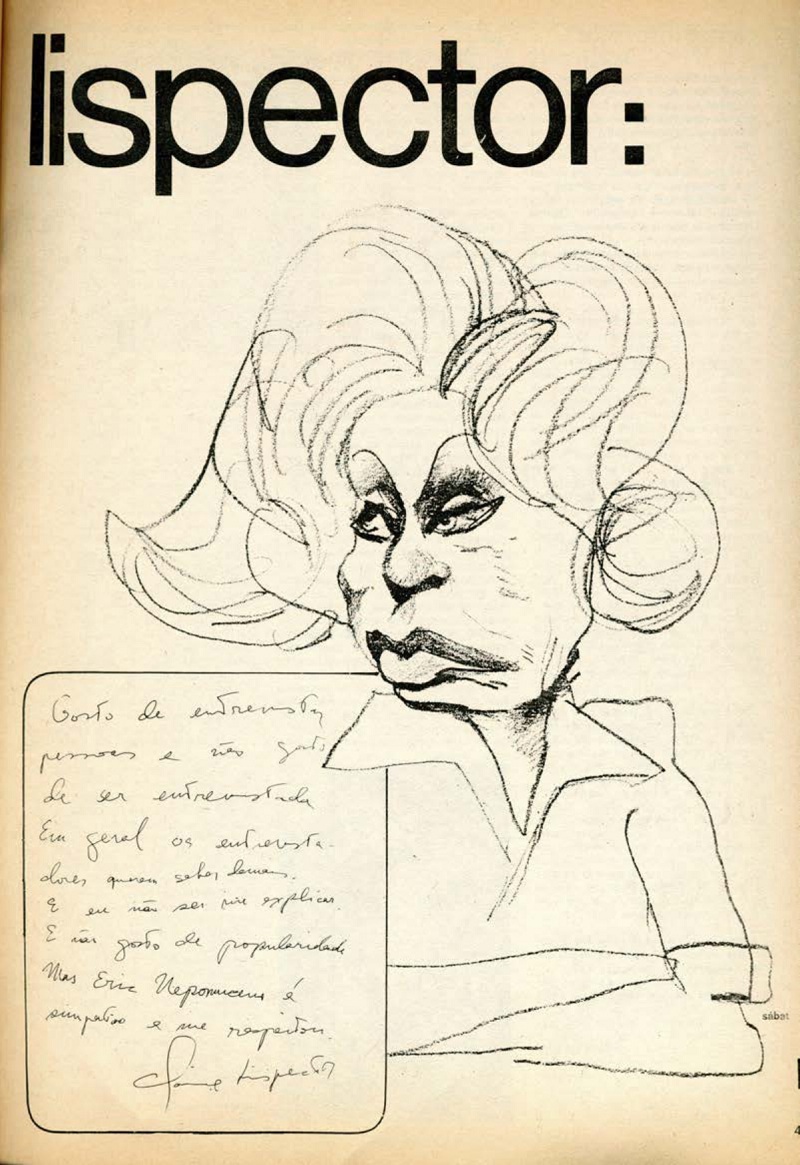 lispector:
Gosto de entrevistar
pessoas e não gosto
de ser entrevistada
Em geral os entrevista-
dores querem saber demais.
E eu não sei me explicar.
E não gosto de popularidade
Mas Eric Nepomuceno é
simpatico e me respeitou.
Clarice Lispector
sábat
4